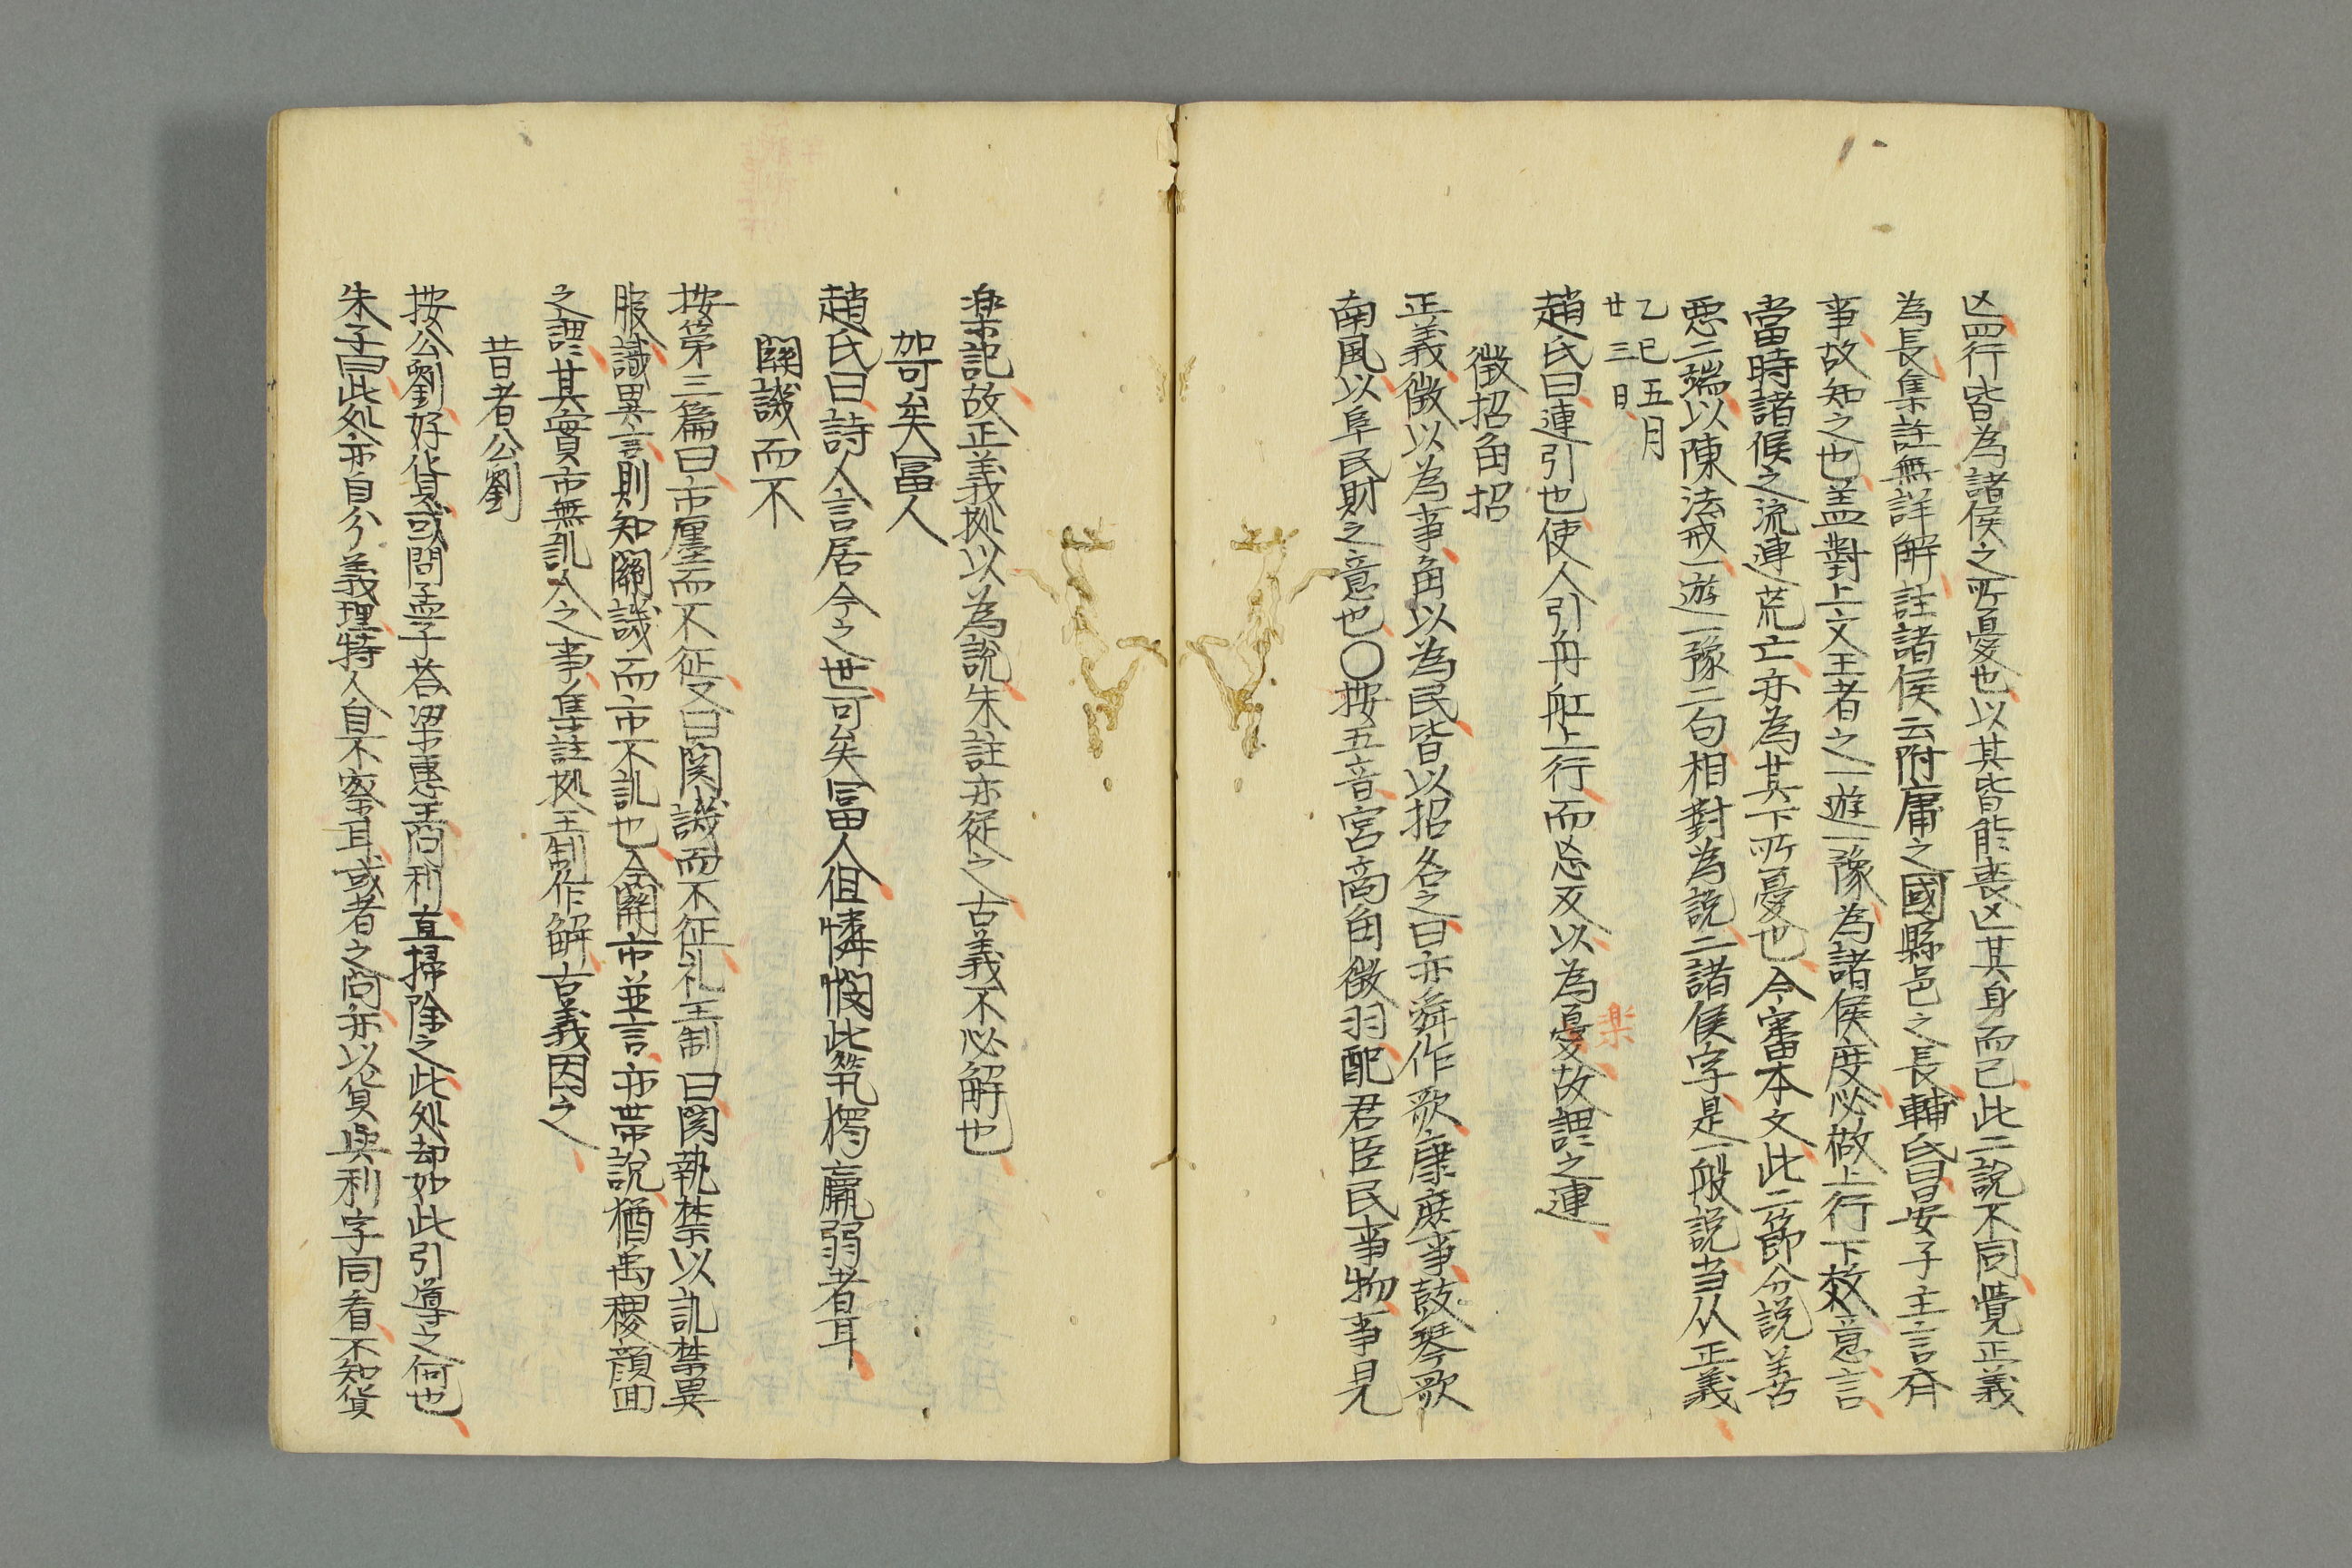 凶四行皆為諸侯之所憂也以其皆能喪亾其身而已此二說不同覺正義
為長集註無詳解註諸侯云附庸之國縣邑之長輔氏曰晏子主言齊
事故知之也盖對上文王者之一遊一豫為諸侯度必做上行下效意言
當時諸侯之流連荒亡亦為其下所憂也今審本文此二節分說善
悪二端以陳法戒一遊一豫二句相對為說二諸侯字是一般說当从正義
乙巳五月
廿三日
趙氏曰連引也使人引舟舡上行而忘反以為憂故謂之連
楽
徵招角招
正義徵以為事角以為民皆以招名之曰亦舜作歌康庶事鼓琴歌
南風以阜民財之意也〇按五音宮商角徵羽配君臣民事物事見
楽記故正義拠以為說朱註亦從之古義不必解也
哿矣冨人
趙氏曰詩人言居今之世可矣冨人但憐憫此煢獨羸弱者耳
関譏而不
按第三篇曰市廛而不征又曰関譏而不征礼王制曰関執禁以訊禁異
服識異言則知関譏而市不訊也今関市並言亦帯說猶禹稷顔回
之謂其實市無訊人之事集註拠王制作解古義因之
昔者公劉
按公劉好貨或問孟子荅梁惠王問利直掃除之此処却如此引導之何也
朱子曰此処亦自分義理特人自不察耳或者之問亦以貨與利字同看不知貨